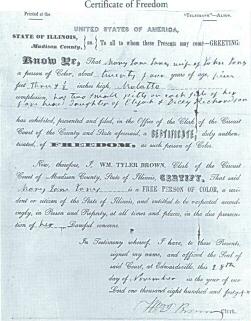 Certificate of Freedom
Printed at the "TELEGRAPH"—ALTON.
UNITED STATES OF AMERICA,
STATE OF ILLINOIS,
Madison County, ss. To all to whom these Presents may come—GREETING:
Know Ye, That Mary Jane Jones wife of John Jones
a person of Color, about twenty four years of age, five
feet three & inches high Mulatto
complexion, has two small pitts on each side of her
face near Daughter of Elijah & Diley Richardson
has exhibited, presented and filed, in the Office of the Clerk of the Circuit
Court of the County and State aforesaid, a CERTIFICATE, duly authen-
ticated, of FREEDOM, as such person of Color.
Now, therefore, I WM. TYLER BROWN, Clerk of the Circuit
Court of Madison County, State of Illinois, CERTIFY, That said
Mary Jane Jones is a FREE PERSON OF COLOR, a res-
ident or citizen of the State of Illinois, and entitled to be respected accord-
ingly, in Person and Property, at all times and places, in the due prosecu-
tion of her Lawful concerns.
In Testimony whereof, I have, to these Presents,
signed my name, and affixed the Seal of
said Court, at Edwardsville, this 28th
day of November in the year of our
Lord one thousand eight hundred and forty
Brown CLERK.